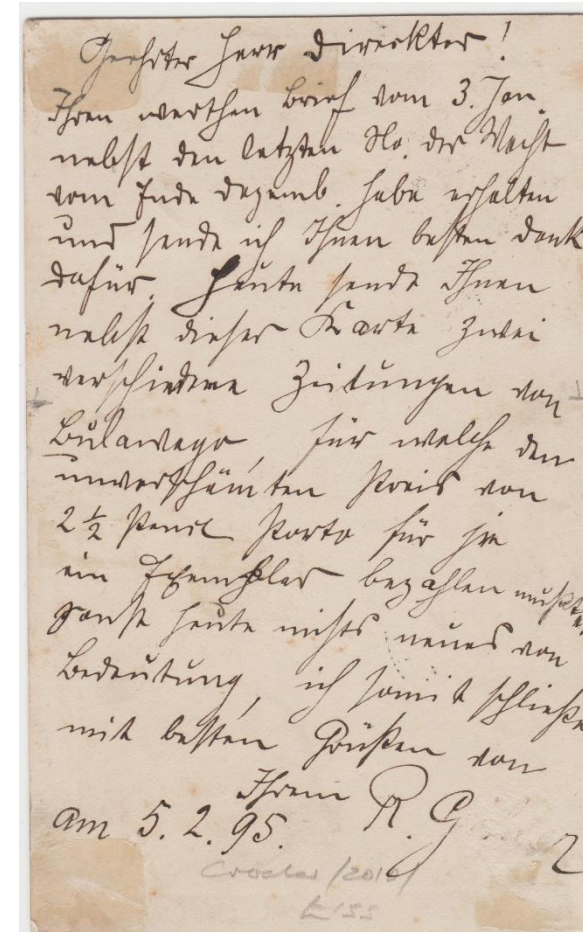 Geehrter Herr Direkter!
Ihren werthen Brief vom 3. Jan.
nebst den letzten No. der Wacht
vom Ende Dezemb. habe erhalten
und sende ich Ihnen besten Dank
dafür. Heute sende Ihnen
nebst dieser Karte zwei
verschiedene Zeitungen von
Bulawayo, für welche den
unverschämten Preis von
2 ½ Penct Porto für je
ein Exemplar bezahlen mußte.
Sonst heute nichts neues von
Bedeutung, ich somit schließe
mit besten Grüßen von
Ihrem R.
am 5. 2. 95.